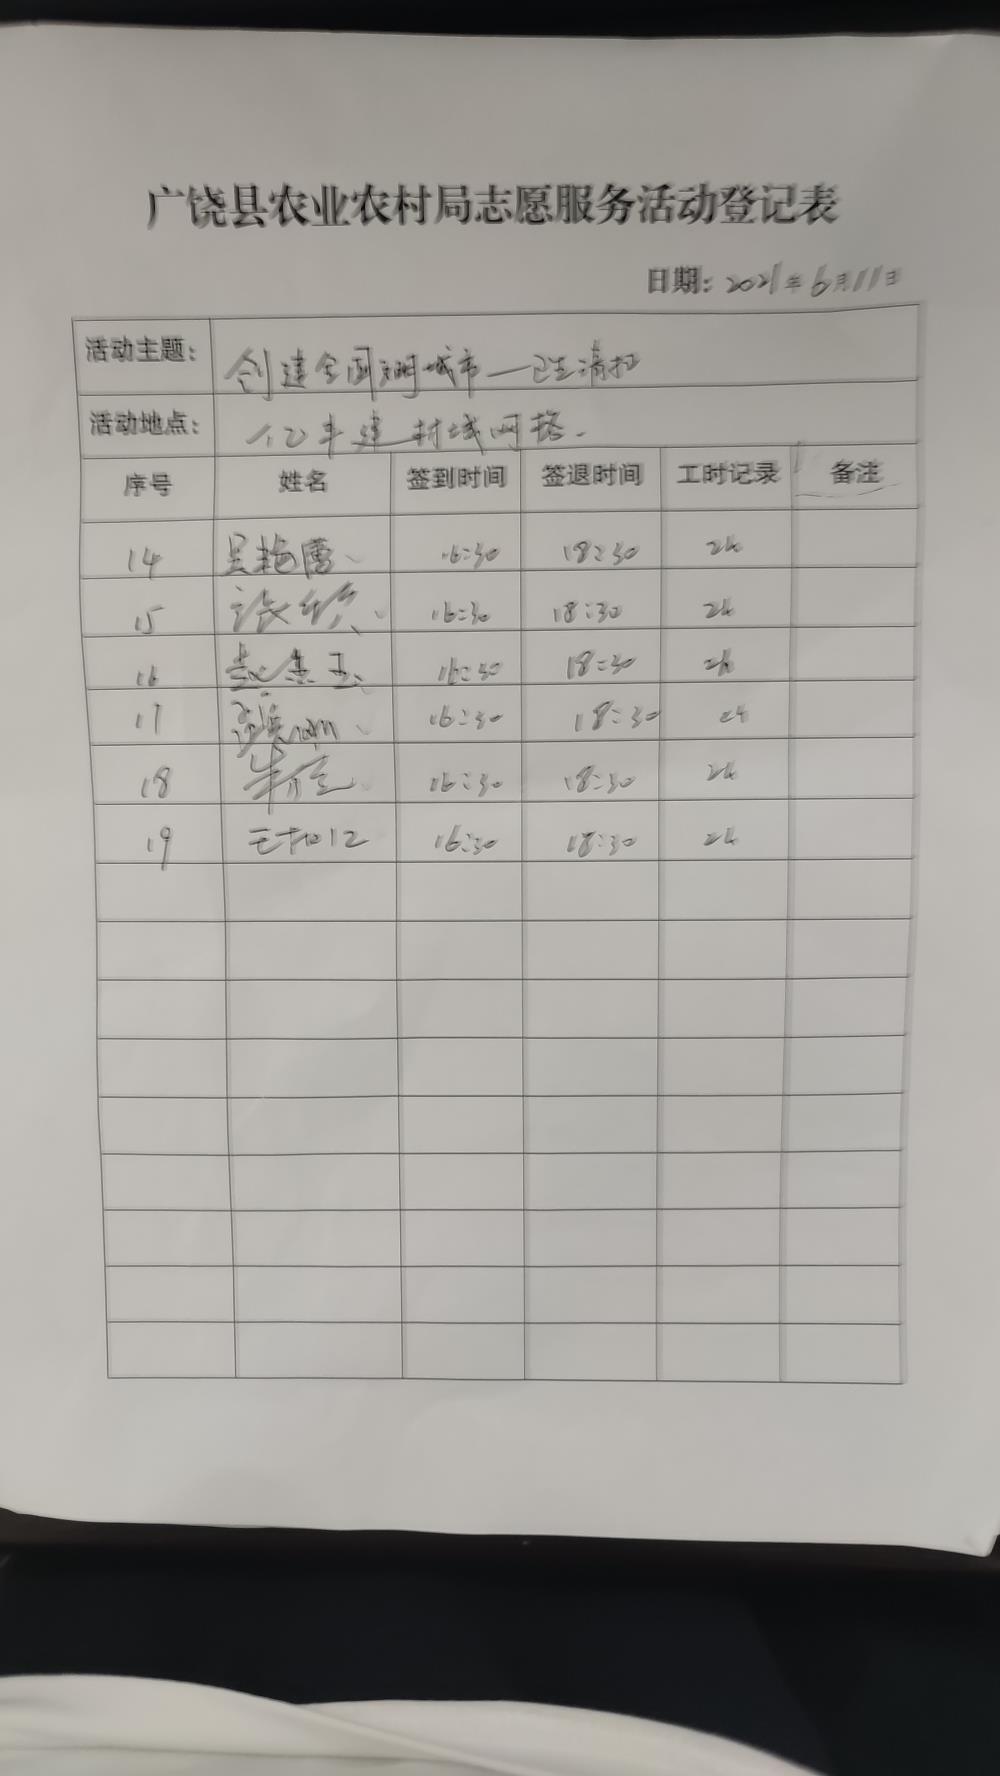 广饶县农业农村局志愿服务活动登记表
日期: 2021年6月11日
活动主题: 创建全国文明城市—卫生清扫
活动地点: 亿丰建材城网格.
序号 姓名 签到时间 签退时间 工时记录 备注
14 16:30 18:30 2h
15 16:30 18:30 2h
16 16:30 18:30 2h
17 16:30 18:30 2h
18 16:30 18:30 2h
19 16:30 18:30 2h